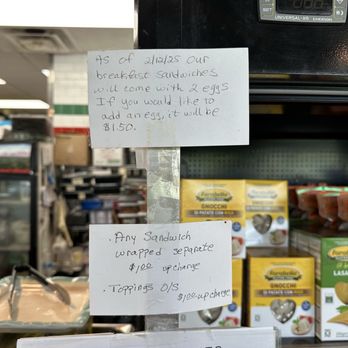 As of 2/12/25 our
breakfast sandwiches
will come with 2 eggs
If you would like to
add an egg, it will be
$1.50.
UNIVERSAL-RS EMERSON
farabella
GNOCCHI
DI PATATE CON RISO
farabella
GNOCCHI
• Any Sandwich
wrapped separate
$1.00 upcharge
• Toppings O/S
$1.00 upcharge
farabella
GNOCCHI
DI PATATE CON RISO
LASA